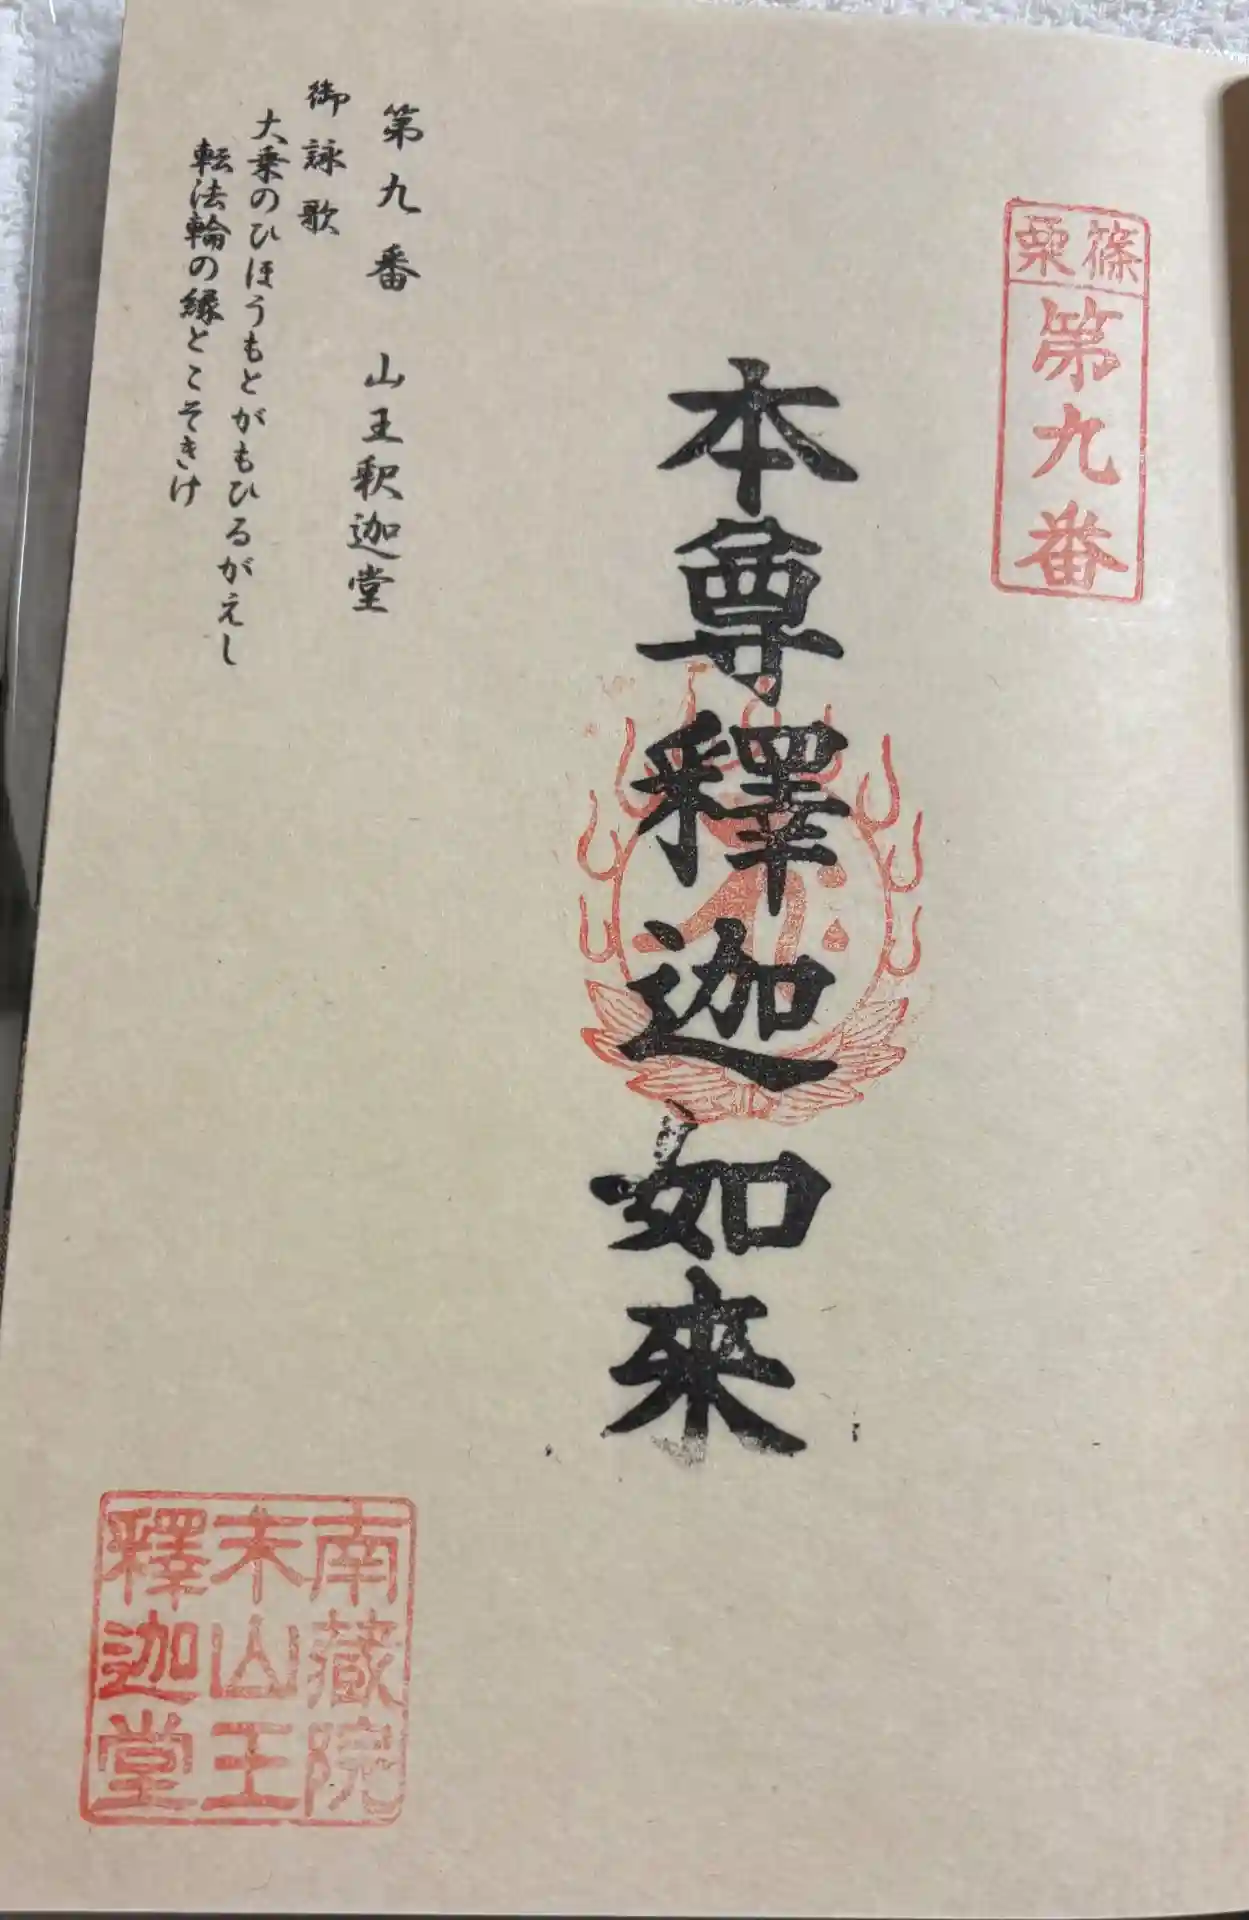 篠栗
第九番
本尊釋迦如來
第九番 山王釈迦堂
御詠歌
大乗のひほうもとがもひるがえし
転法輪の縁とこそきけ
南蔵院
末山王
釋迦堂